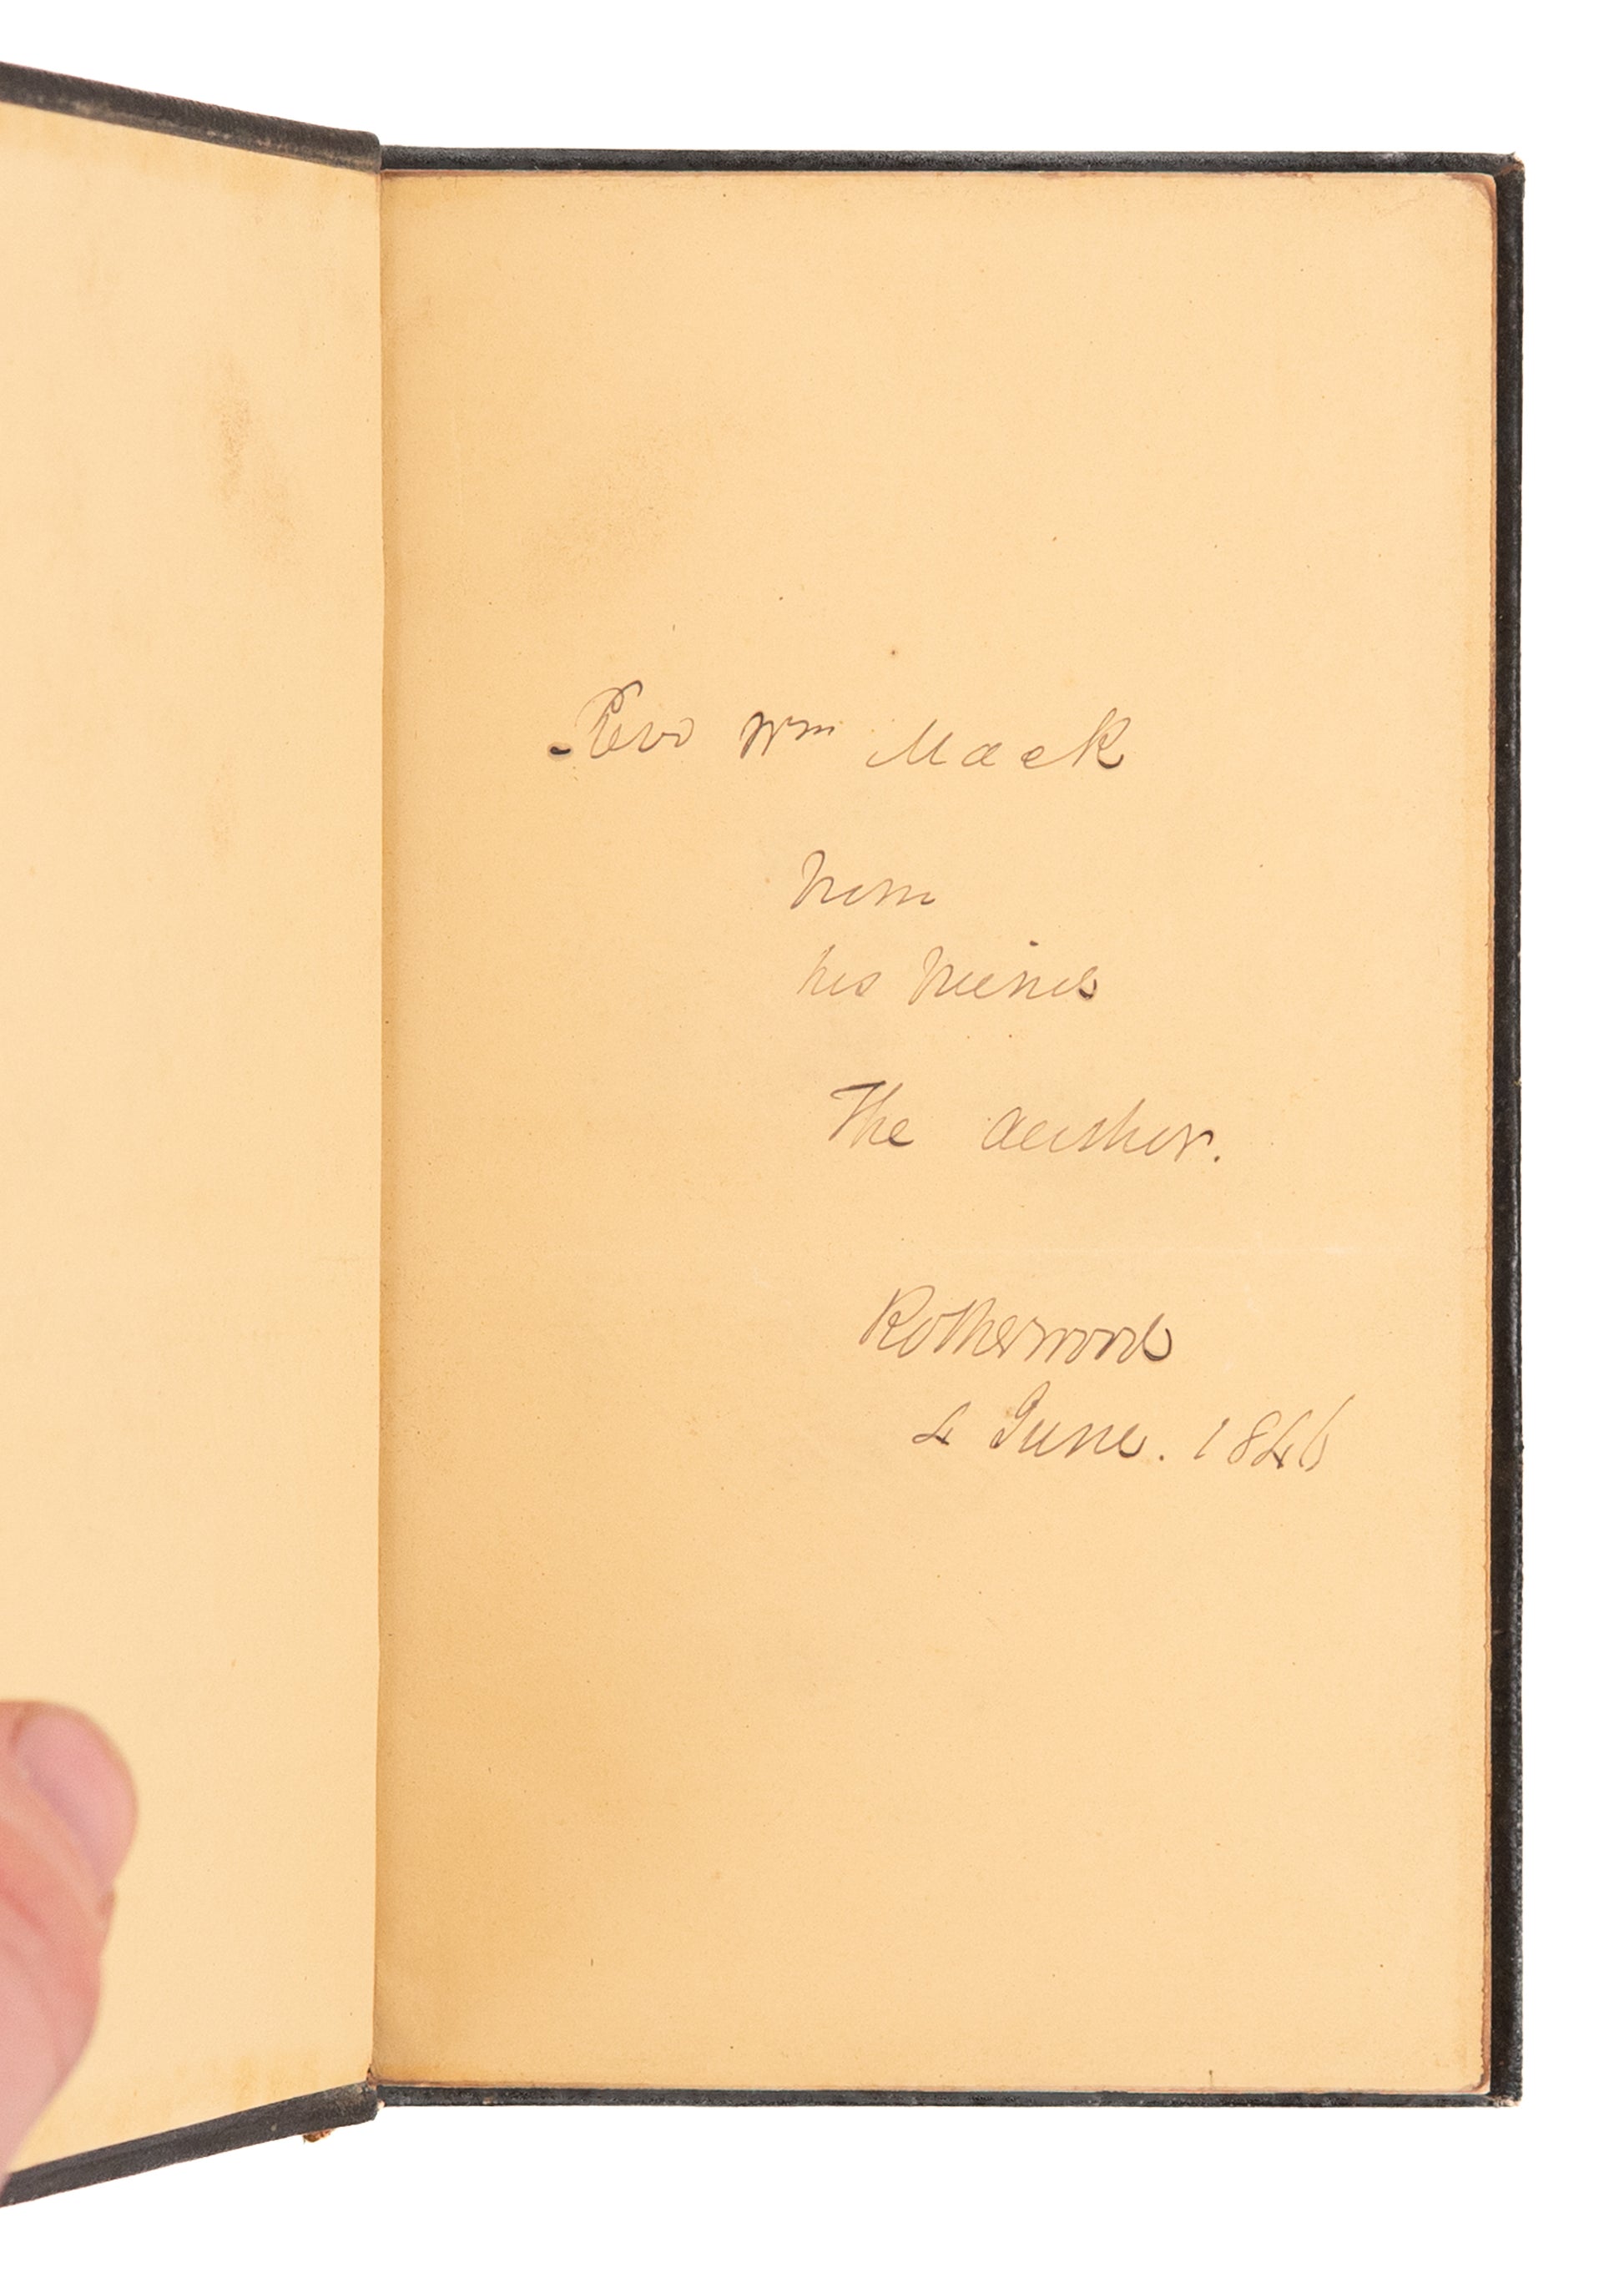 Revd Wm Mack
from
his friend
The author.
Rotherwood
4 June. 1846